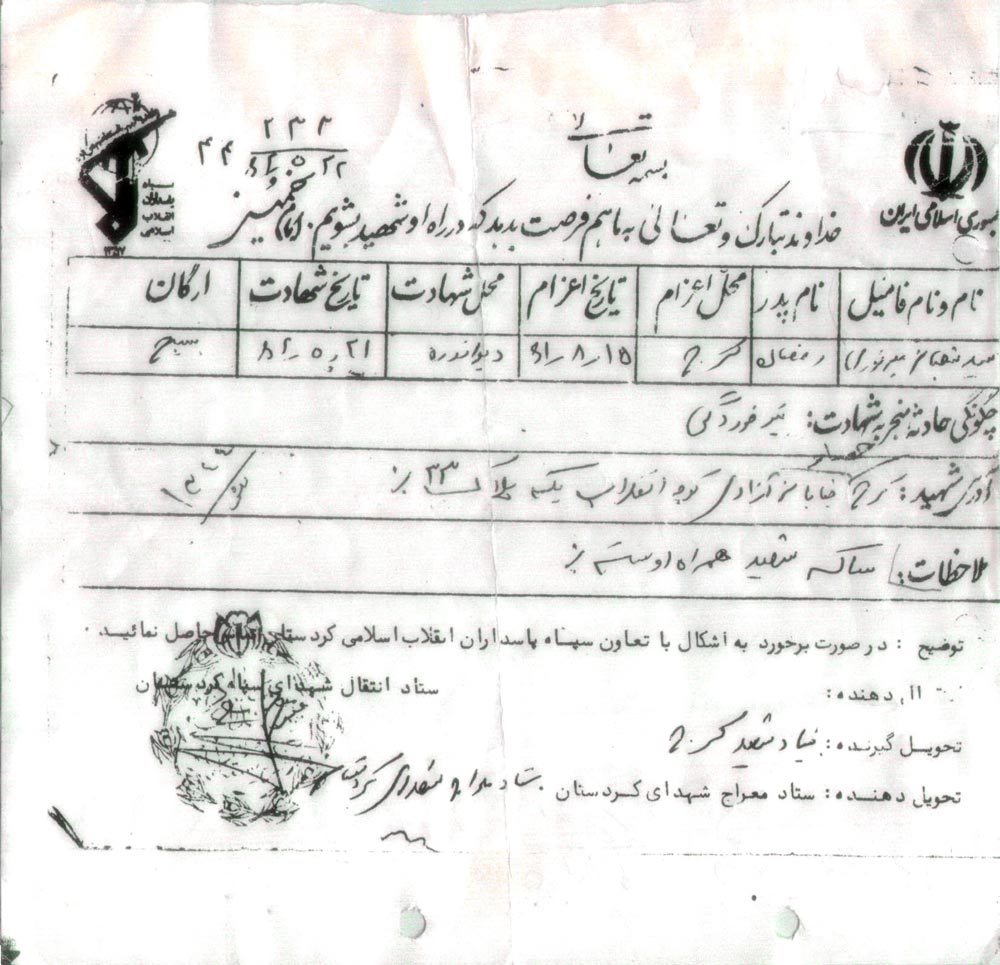 بسمه تعالا
۲۳۲
۴۴
جمهوری اسلامی ایران
سپاه پاسداران انقلاب اسلامی
خداوند تبارک و تعالی به ما هم فرصت بدهد که در راه او شهید بشویم. (امام خمینی)
نام و نام فامیل نام پدر محل اعزام تاریخ اعزام محل شهادت تاریخ شهادت ارگان
رمضان کرج ۱۵ر۸ر۶۱ دیواندره بسیج
چگونگی حادثه منجر به شهادت: تیر خوردگی
آدرس شهید: کرج خیابان آزادی کوچه انقلاب یکم پلاک ۳۳
ملاحظات: ساک شهید همراه او
توضیح : در صورت برخورد به اشکال با تعاون سپاه پاسداران انقلاب اسلامی کردستان حاصل نمائید .
ستاد انتقال شهدای سپاه کردستان
دهنده:
تحویل گیرنده: بنیاد شهید کرج
تحویل دهنده: ستاد معراج شهدای کردستان